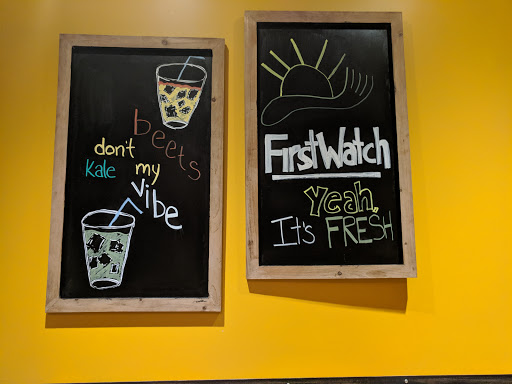 beets
don't
Kale my
vibe
First Watch
Yeah,
It's FRESH